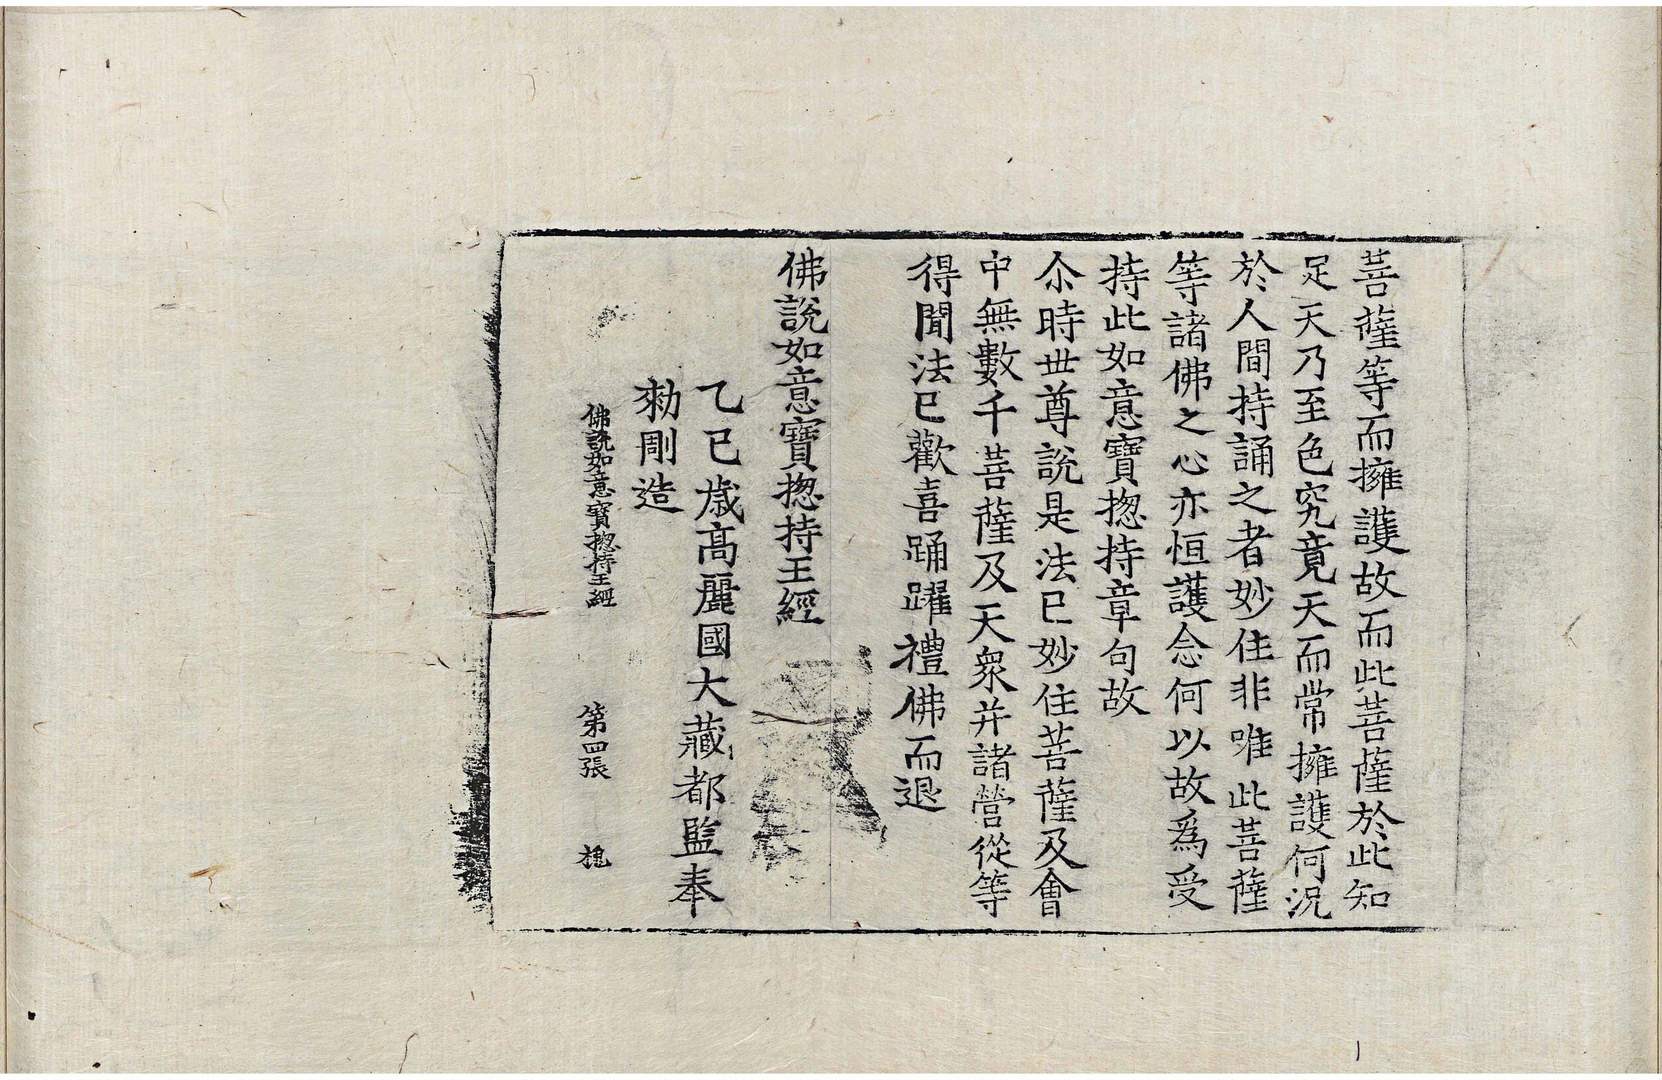 菩薩等而擁護故而此菩薩於此知
足天乃至色究竟天而常擁護何況
於人間持誦之者妙住非唯此菩薩
等諸佛之心亦恒護念何以故爲受
持此如意寶揔持章句故
尒時世尊說是法已妙住菩薩及會
中無數千菩薩及天衆并諸營從等
得聞法已歡喜踊躍禮佛而退
佛說如意寶揔持王經
乙巳歲高麗國大藏都監奉
勑彫造
佛說如意寶揔持王經 第四張 槐